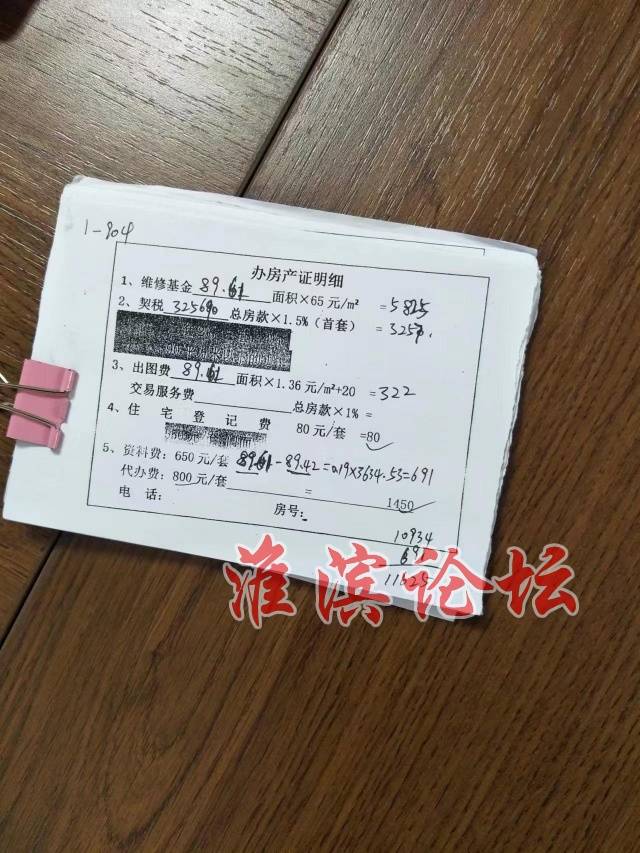 1-904
办房产证明细
1、维修基金 89.61 面积×65元/m² =5825
2、契税 325690 总房款×1.5%(首套) =3257.
3、出图费 89.61 面积×1.36元/m²+20 =322
交易服务费 总房款×1% =
4、住宅登记费 80元/套 =80
5、资料费:650元/套 89.61-89.42=0.19×3634.55=691
代办费:800元/套 = 1450
电话: 房号:
10934
691
11625
淮滨论坛